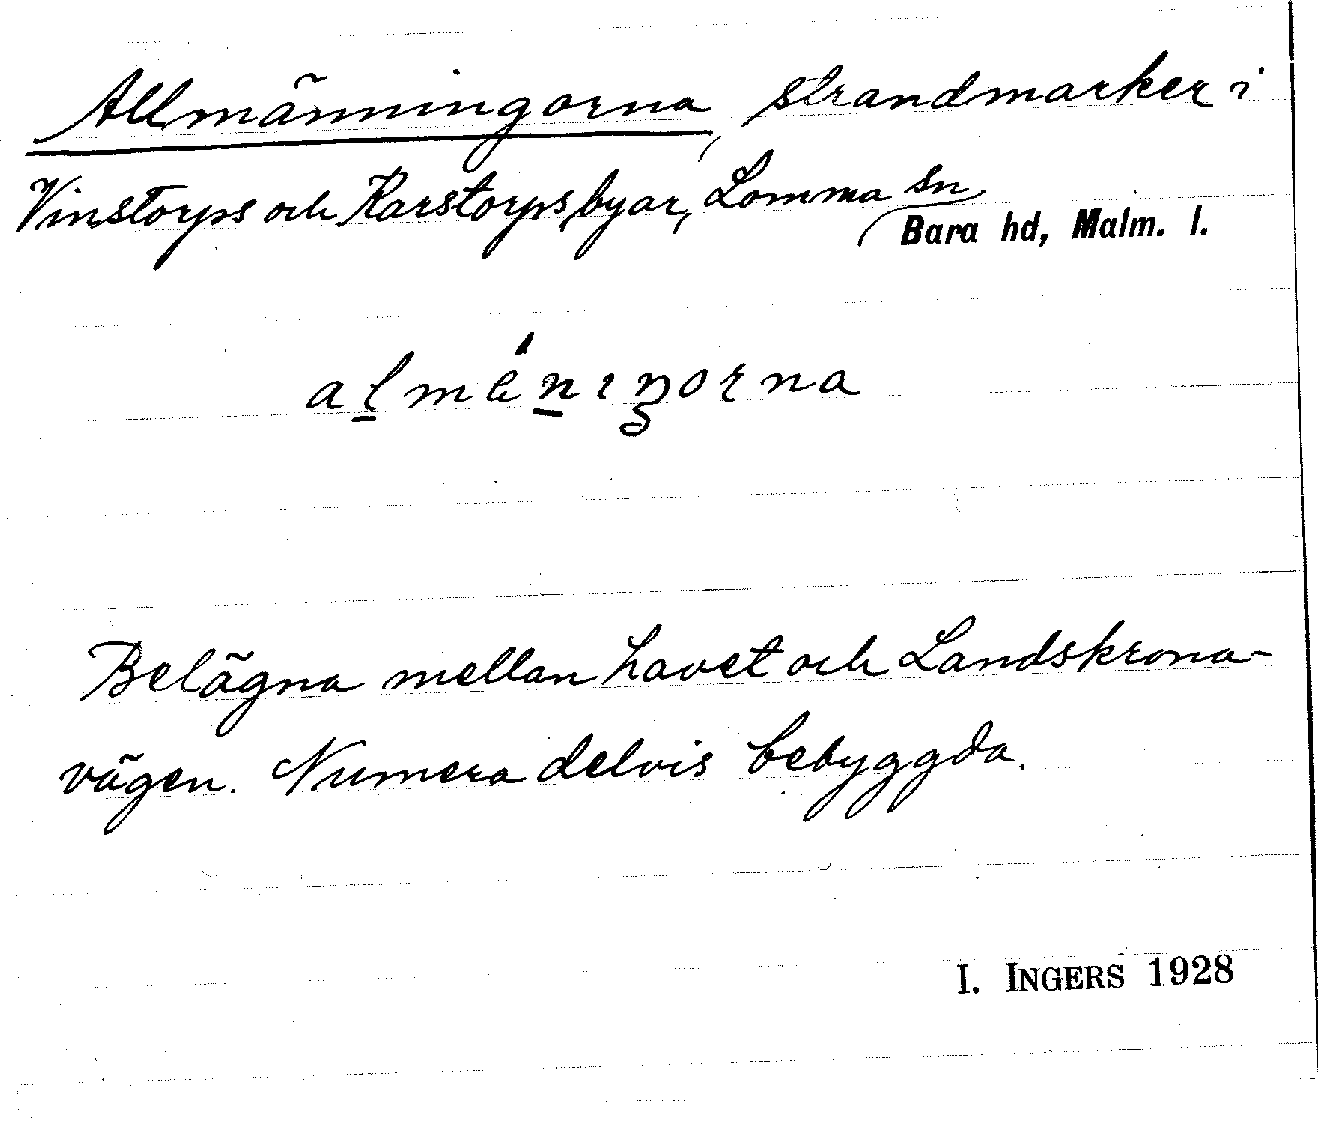 Allmänningorna, strandmarker i
Vinstorps och Karstorps byar, Lomma sn,
Bara hd, Malm. l.
almäniŋorna
Belägna mellan havet och Landskrona-
vägen. Numera delvis bebyggda.
I. INGERS 1928